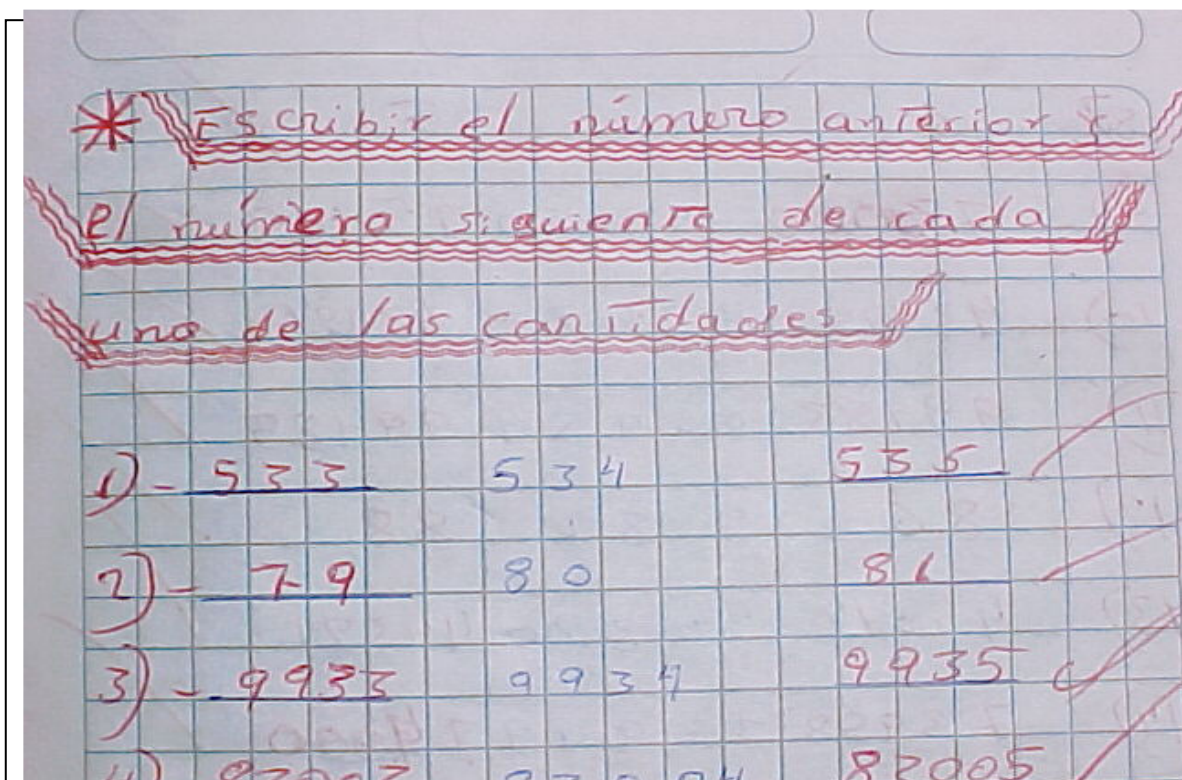 * Escribir el número anterior y
el número siguiente de cada
una de las cantidades
1) - 533 534 535
2) - 79 80 81
3) - 9933 9934 9935
82005